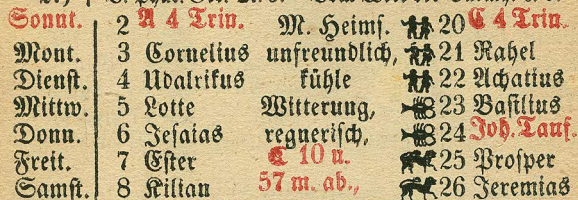 Sonnt. 2 A 4 Trin. M. Heims. 20 C 4 Trin.
Mont. 3 Cornelius unfreundlich, 21 Rahel
Dienst. 4 Udalrikus kühle 22 Achatius
Mittw. 5 Lotte Witterung, 23 Basilius
Donn. 6 Jesaias regnerisch, 24 Joh. Tauf.
Freit. 7 Ester ☾ 10 u. 25 Prosper
Samst. 8 Kilian 57 m. ab., 26 Jeremias